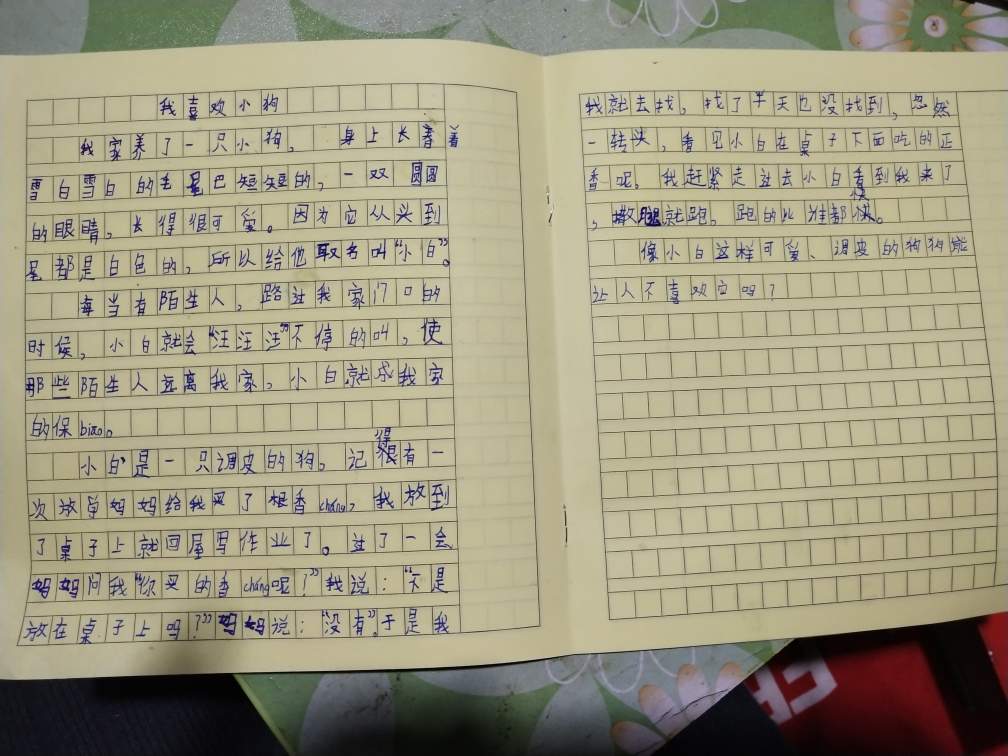 我喜欢小狗
我家养了一只小狗，身上长着
雪白雪白的毛尾巴短短的，一双圆圆
的眼睛，长得很可爱。因为它从头到
尾都是白色的，所以给他取名叫“小白”。
每当有陌生人，路过我家门口的
时候，小白就会“汪汪汪”不停的叫，使
那些陌生人远离我家，小白就成我家
的保biao。
小白是一只调皮的狗。记得有一
次放学妈妈给我买了根香cháng，我放到
了桌子上就回屋写作业了。过了一会
妈妈问我“你买的香cháng呢！”我说：“不是
放在桌子上吗？”妈妈说：“没有”。于是我
我就去找，找了半天也没找到，忽然
一转头，看见小白在桌子下面吃的正
香呢，我赶紧走过去小白看到我来了
，撒腿就跑。跑的比谁都快。
像小白这样可爱、调皮的狗狗能
让人不喜欢它吗？